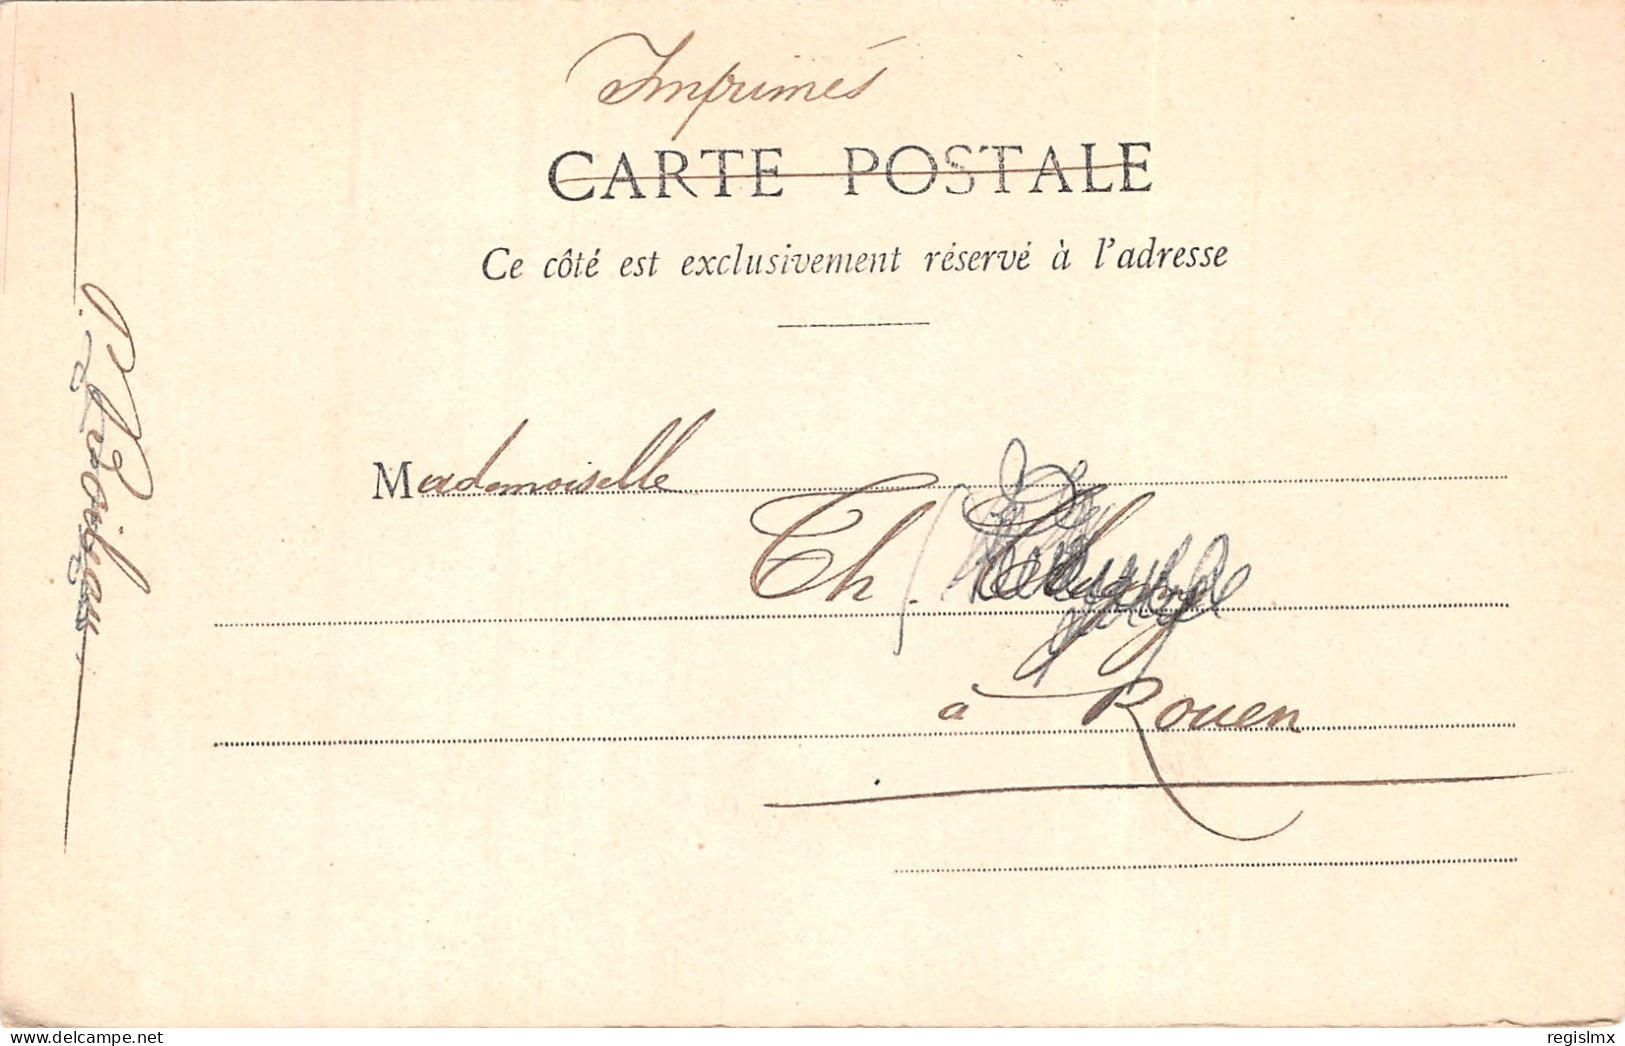 Imprimés
CARTE POSTALE
Ce côté est exclusivement réservé à l'adresse
Mademoiselle
Th.
à Rouen
Boileau
www.delcampe.net
regislmx